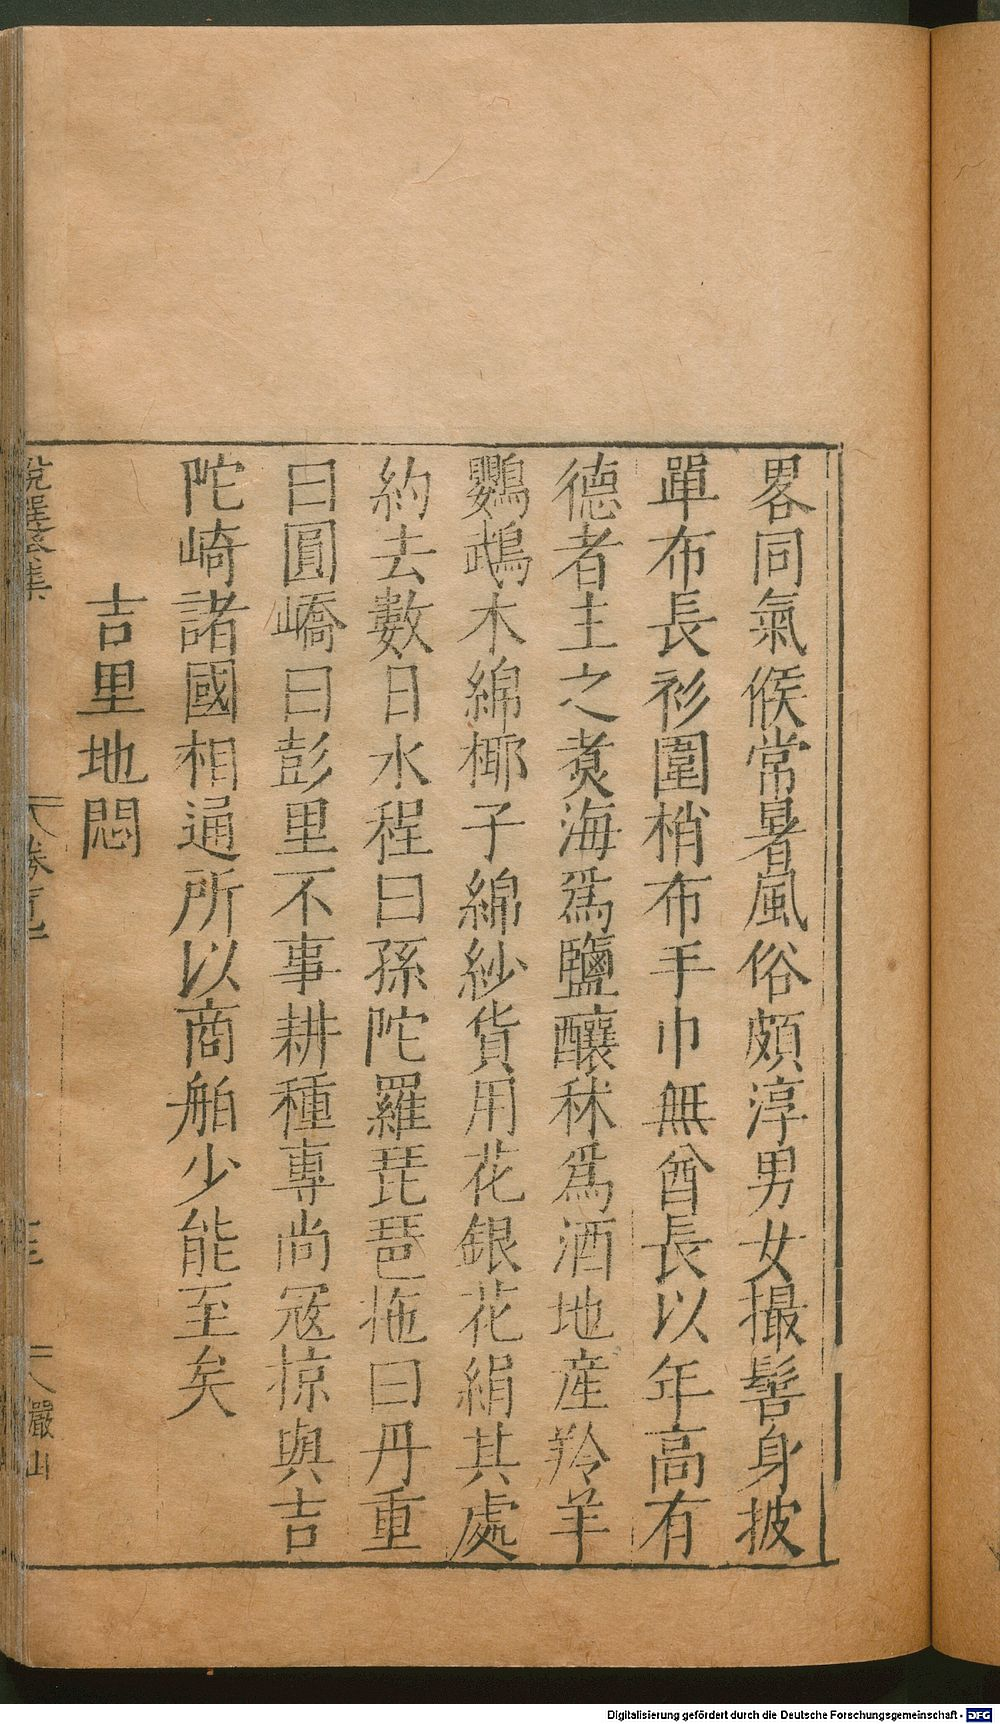 畧同氣候常暑風俗頗淳男女撮髻身披
單布長衫圍梢布手巾無酋長以年高有
德者主之煑海爲鹽釀秫爲酒地産羚羊
鸚鵡木綿椰子綿紗貨用花銀花絹其處
約去數日水程曰孫陀羅琵琶拖曰丹重
曰圓嶠曰彭里不事耕種專尚冦掠與吉
陀崎諸國相通所以商舶少能至矣
吉里地悶
Digitalisierung gefördert durch die Deutsche Forschungsgemeinschaft - DFG